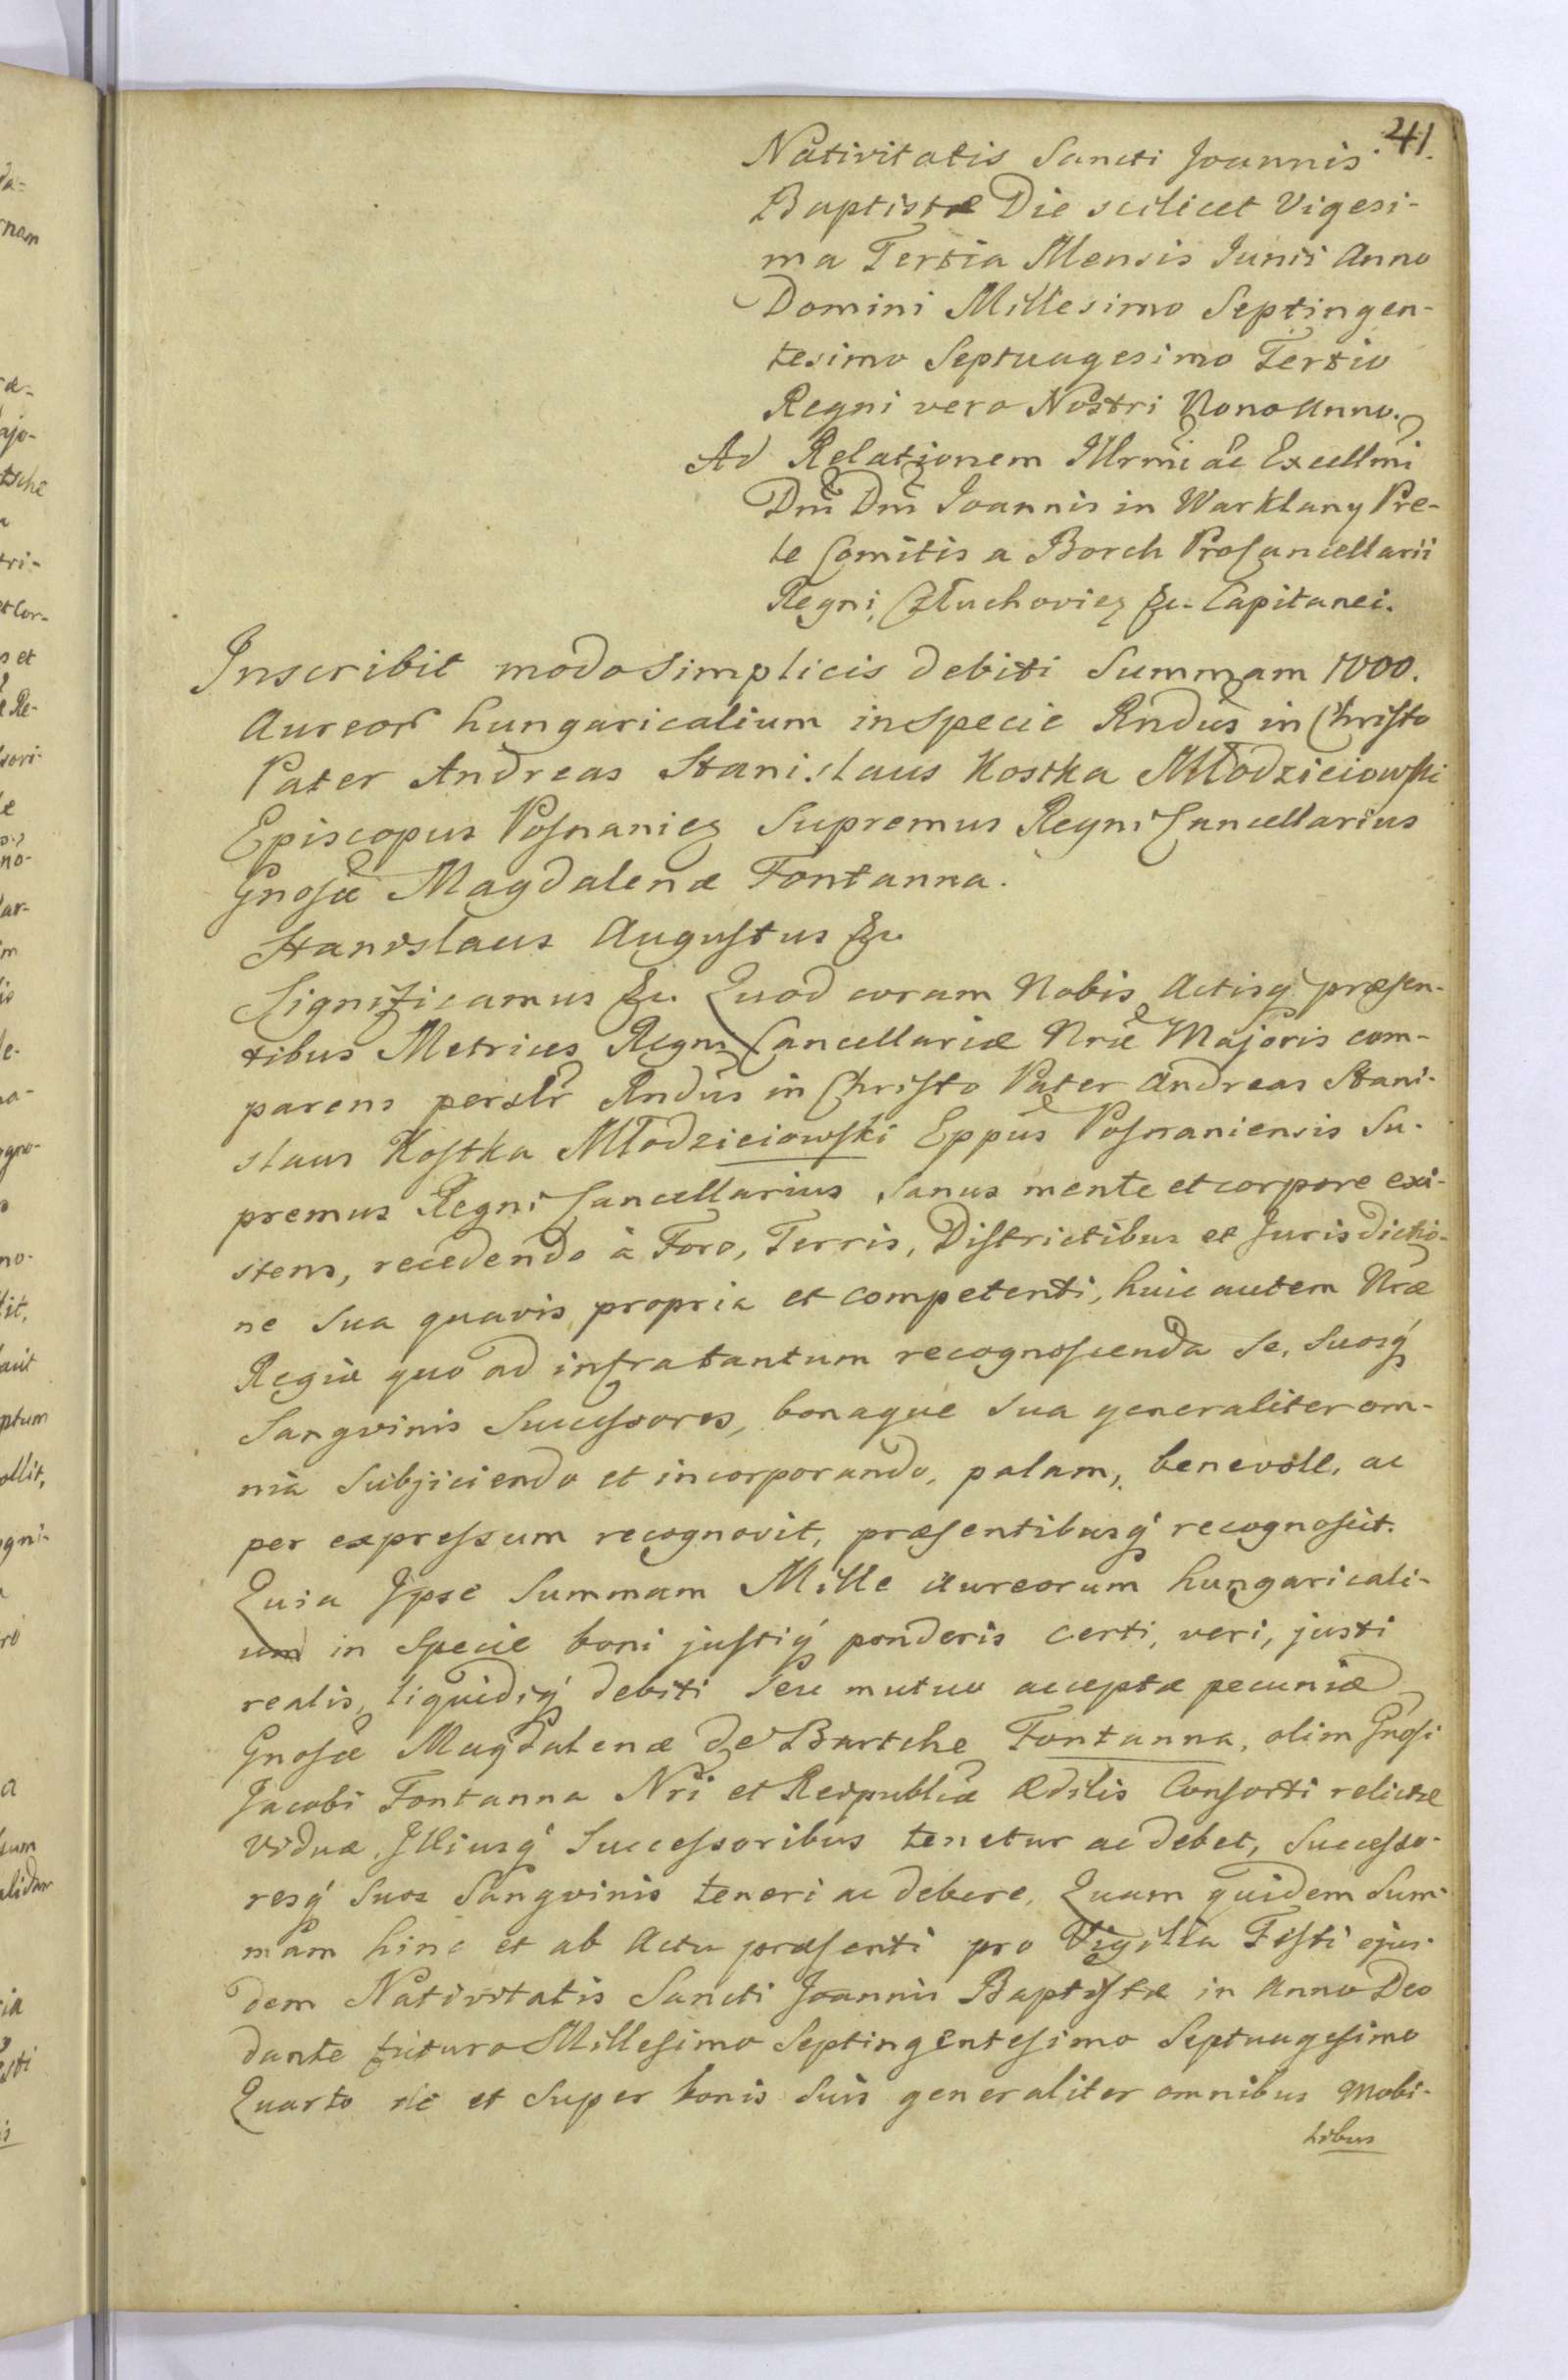 41.
Nativitatis Sancti Joannis
Baptistæ Die scilicet Vigesi-
ma Tertia Mensis Junii Anno
Domini Millesimo Septingen-
tesimo Septuagesimo Tertio
Regni vero Nostri Nono Anno.
Ad Relationem Illrmi ac Excellmi
Dni Dni Joannis in Warklany Pre-
le Comitis a Borch Procancellarii
Regni, Człuchovieꝫ &c. Capitanei.
Inscribit modo simplicis debiti Summam 1000.
Aureor hungaricalium in specie Rndus in Christo
Pater Andreas Stanislaus Kostka Młodzieiowski
Episcopus Posnanieꝫ Supremus Regni Cancellarius
Gnosæ Magdalenæ Fontanna.
Stanislaus Augustus &c.
Significamus &c. Quod coram Nobis Actisq́ præsen-
tibus Metrices Regni Cancellariæ Nræ Majoris com-
parens persлr Rndus in Christo Pater Andreas Stani-
slaus Kostka Młodzieiowski Eppus Posnaniensis Su-
premus Regni Cancellarius, sanus mente et corpore exi-
stens, recedendo à Foro, Terris, Districtibus et Jurisdictio-
ne sua quavis propria et competenti, huic autem Nræ
Regiæ quo ad infratantum recognoscenda se, suosq́
Sangvinis Successores, bonaque sua generaliter om-
nia subjiciendo et incorporando, palam, benevole, ac
per expressum recognovit, præsentibusq́ recognoscit.
Quia Ipse Summam Mille aureorum hungaricali-
um in specie boni justiq́ ponderis certi, veri, justi
realis, liquidiq́ debiti seu mutuo acceptæ pecuniæ
Gnosæ Magdalenæ de Bartche Fontanna, olim Gnosi
Jacobi Fontanna Nri et Reipublicæ Ædilis Consorti relictæ
viduæ, Illiusq́ Successoribus tenetur ac debet, successo-
resq́ suos Sangvinis teneri ac debere. Quam quidem Sum-
mam hinc et ab Actu præsenti pro Vigilia Festi ejus-
dem Nativitatis Sancti Joannis Baptistæ in Anno Deo
dante futuro Millesimo Septingentesimo Septuagesimo
Quarto de et super bonis suis generaliter omnibus mobi-
libus